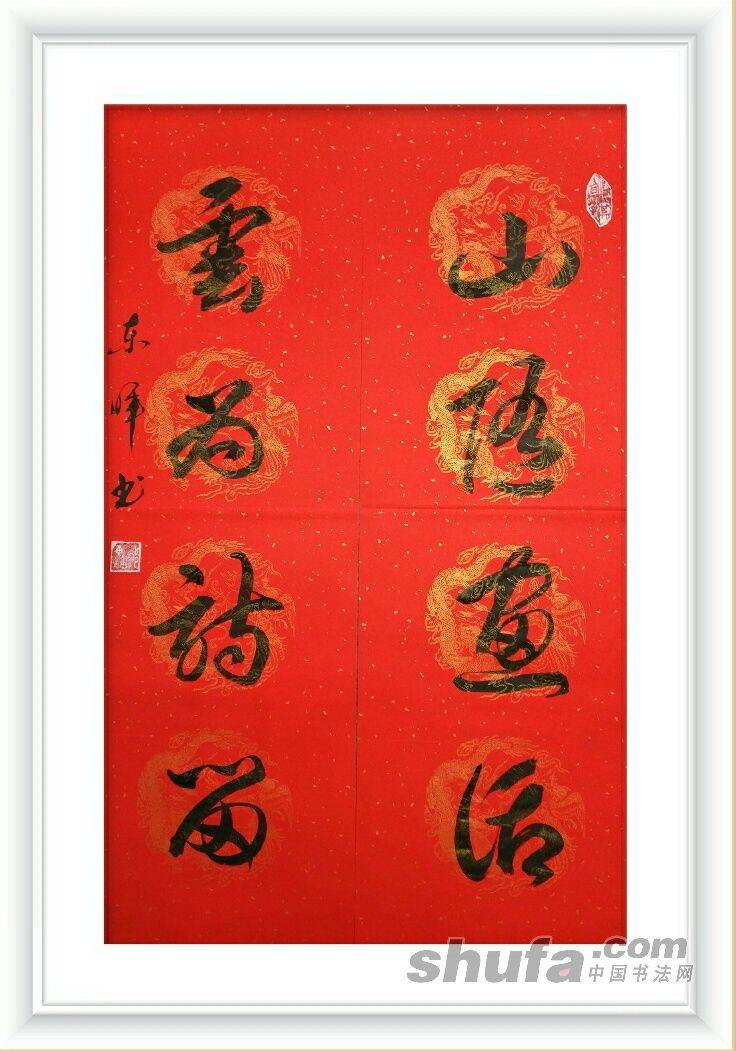 山随畫活
雲为詩留
东晖书
shufa.com
中国书法网